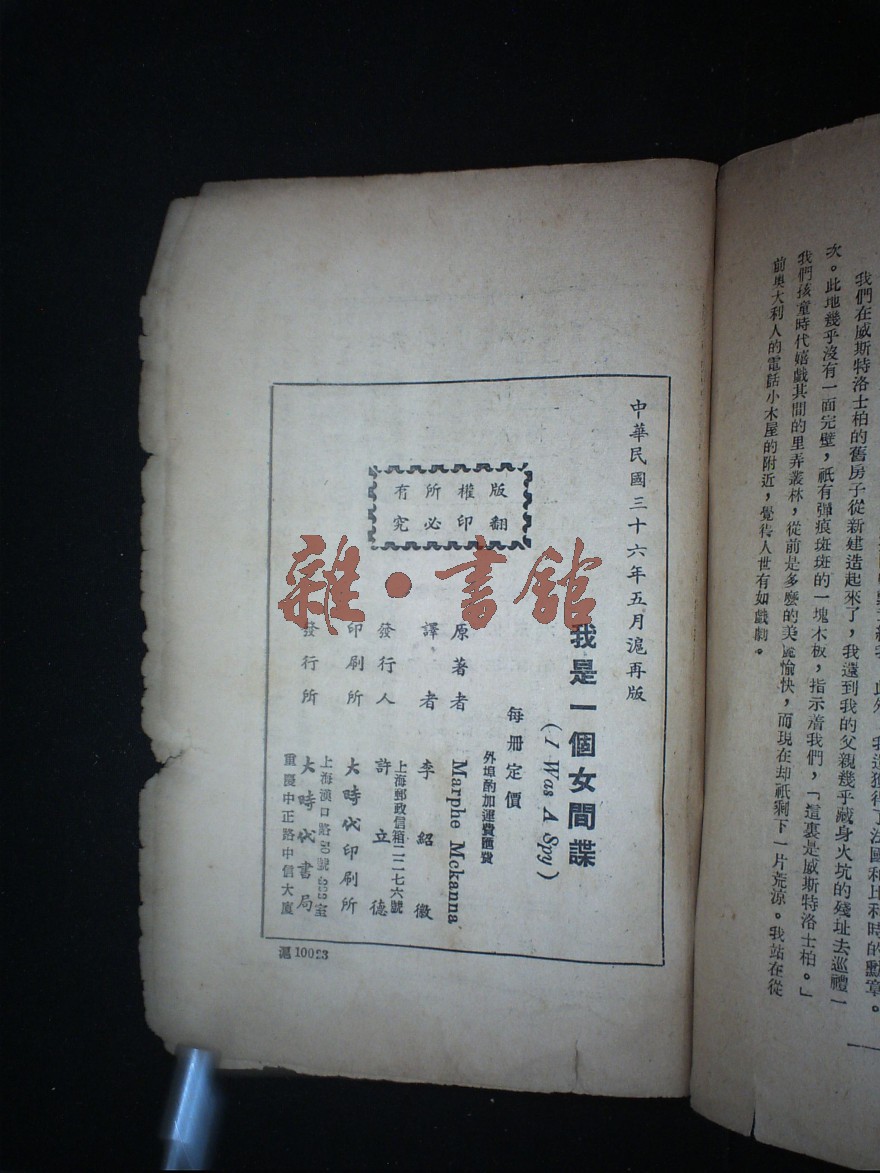 我們在威斯特洛士柏的舊房子從新建造起來了，我還到我的父親幾乎藏身火坑的殘址去巡禮一
次。此地幾乎沒有一面完壁，祇有彈痕斑斑的一塊木板，指示着我們，「這裏是威斯特洛士柏。」
我們孩童時代嬉戲其間的里弄叢林，從前是多麼的美麗愉快，而現在却祇剩下一片荒涼。我站在從
前奧大利人的電話小木屋的附近，覺得人世有如戲劇。
中華民國三十六年五月滬再版
版權所有
翻印必究
我是一個女間諜
(I Was A Spy)
每冊定價
外埠酌加運費匯費
原著者 Marphe Mckanna
譯者 李紹徽
發行人 許立德
上海郵政信箱二二七六號
印刷所 大時代印刷所
發行所 大時代書局
上海漢口路50號322室
重慶中正路中信大廈
滬10023
雜·書館